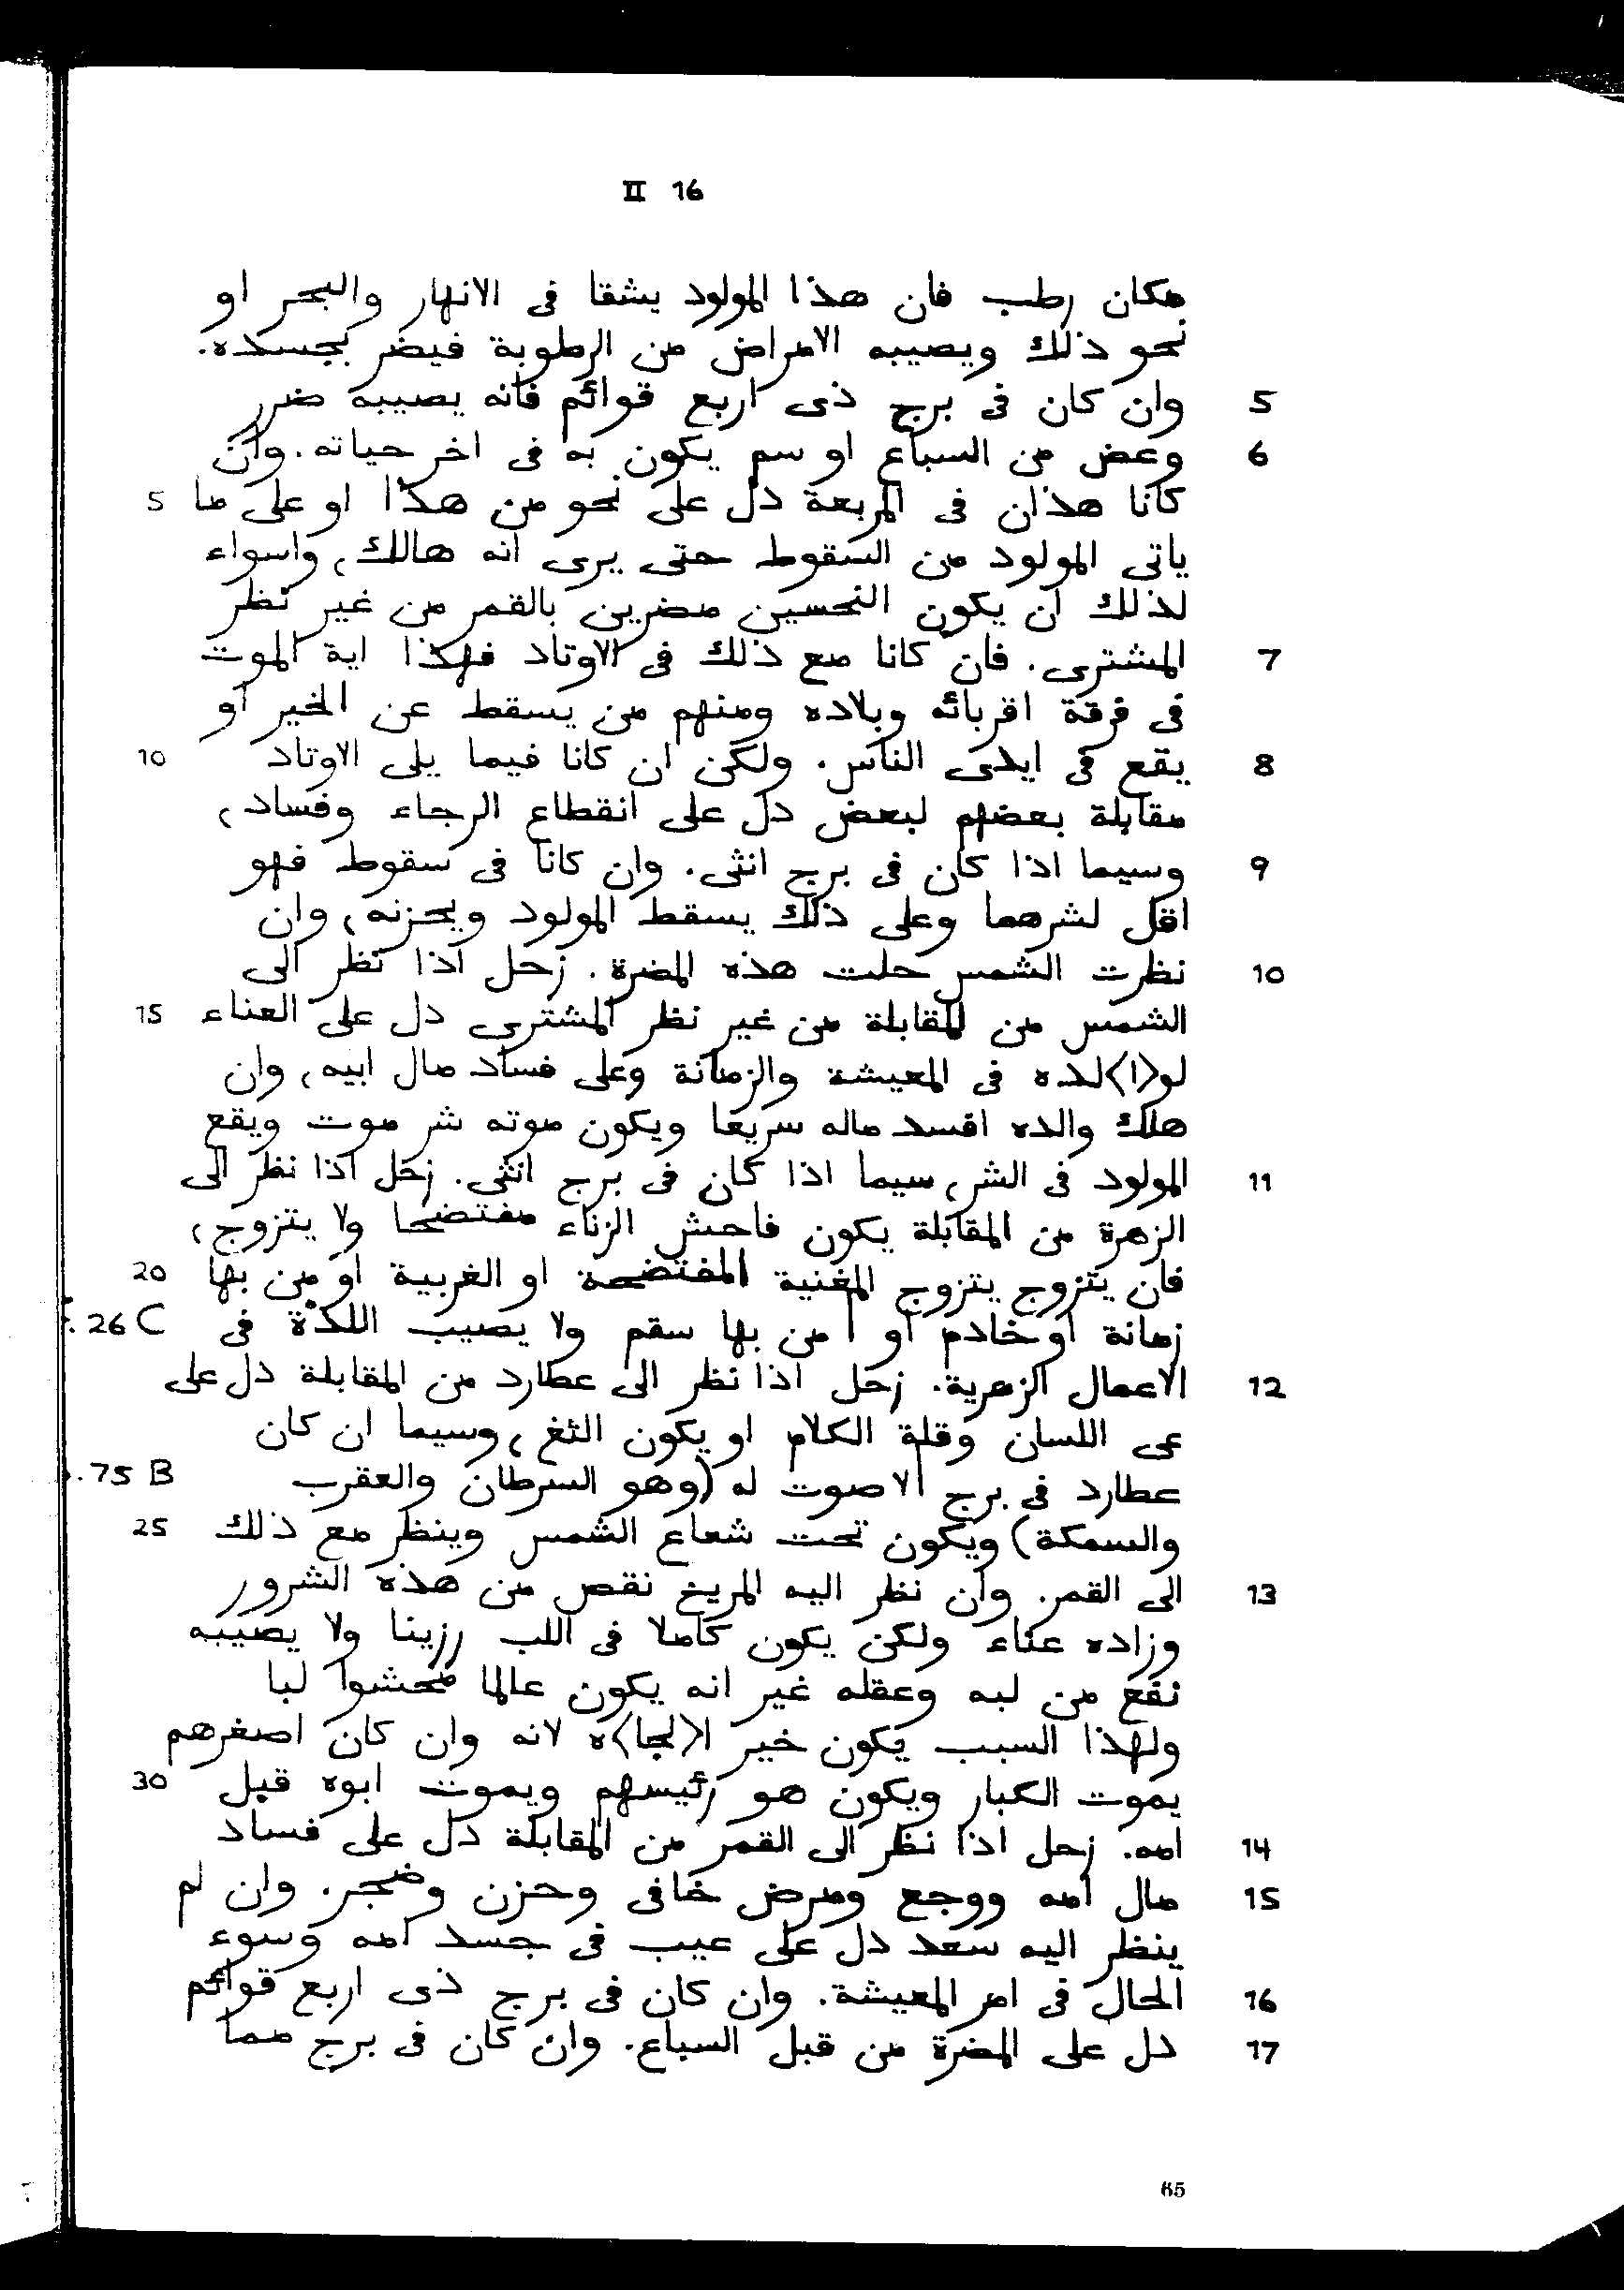 II 16
مكان رطب فان هذا المولود يشقا فى الانهار والبحر او
نحو ذلك ويصيبه الامراض من الرطوبة فيضر بجسده.
5 وان كان فى برج ذى اربع قوائم فانه يصيبه ضرر
6 وعض من السباع او سم يكون به فى اخر حياته. وان
كانا هذان فى المربعة دل على نحو من هذا او على ما 5
ياتى المولود من السقوط حتى يرى انه هالك، واسواء
لذلك ان يكون النحسين مضرين بالقمر من غير نظر
7 المشترى. فان كانا مع ذلك فى الاوتاد فهذا اية الموت
فى فرقة اقربائه وبلاده ومنهم من يسقط عن الخير او
8 يقع فى ايدى الناس. ولكن ان كانا فيما يلى الاوتاد 10
مقابلة بعضهم لبعض دل على انقطاع الرجاء وفساد،
9 وسيما اذا كان فى برج انثى. وان كانا فى سقوط فهو
اقل لشرهما وعلى ذلك يسقط المولود ويحزنه، وان
10 نظرت الشمس حلت هذه المضرة. زحل اذا نظر الى
الشمس من المقابلة من غير نظر المشترى دل على العناء 15
لو<ا>لده فى المعيشة والزمانة وعلى فساد مال ابيه، وان
هلك والده افسد ماله سريعا ويكون موته شر موت ويقع
11 المولود فى الشر، سيما اذا كان فى برج انثى. زحل اذا نظر الى
الزهرة من المقابلة يكون فاحش الزناء مفتضحا ولا يتزوج،
فان يتزوج يتزوج المغنية المفتضحة او الغربية او من بها 20
زمانة او خادم او | من بها سقم ولا يصيب اللذة فى 26 C
12 الاعمال الزهرية. زحل اذا نظر الى عطارد من المقابلة دل على
عى اللسان وقلة الكلام او يكون الثغ، وسيما ان كان
عطارد فى برج | لا صوت له (وهو السرطان والعقرب 75 B
والسمكة) ويكون تحت شعاع الشمس وينظر مع ذلك 25
13 الى القمر. وان نظر اليه المريخ نقص من هذه الشرور
وزاده عناء ولكن يكون كاملا فى اللب رزينا ولا يصيبه
نفع من لبه وعقله غير انه يكون عالما محشوا لبا
ولهذا السبب يكون خير ا<لجا>ه لانه وان كان اصغرهم
يموت الكبار ويكون هو رئيسهم ويموت ابوه قبل 30
14 امه. زحل اذا نظر الى القمر من المقابلة دل على فساد
15 مال امه ووجع ومرض خافى وحزن وضجر. وان لم
ينظر اليه سعد دل على عيب فى جسد امه وسوء
16 الحال فى امر المعيشة. وان كان فى برج ذى اربع قوائم
17 دل على المضرة من قبل السباع. وان كان فى برج مما
65